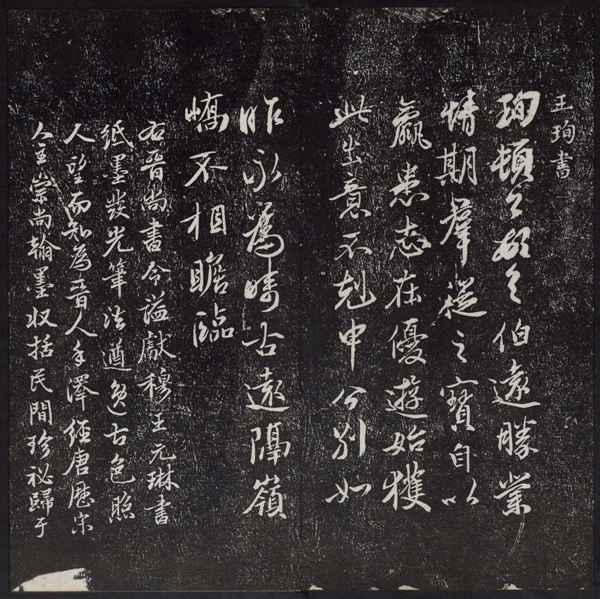 王珣書
珣頓首頓首伯遠勝業
情期羣從之寶自以
羸患志在優遊始獲
此出意不剋申分別如
昨永為疇古遠隔嶺
嶠不相瞻臨
右晉尚書令謚獻穆王元琳書
紙墨發光筆法遒逸古色照
人望而知為晉人手澤經唐歷宋
人主崇尚翰墨收括民間珍祕歸于